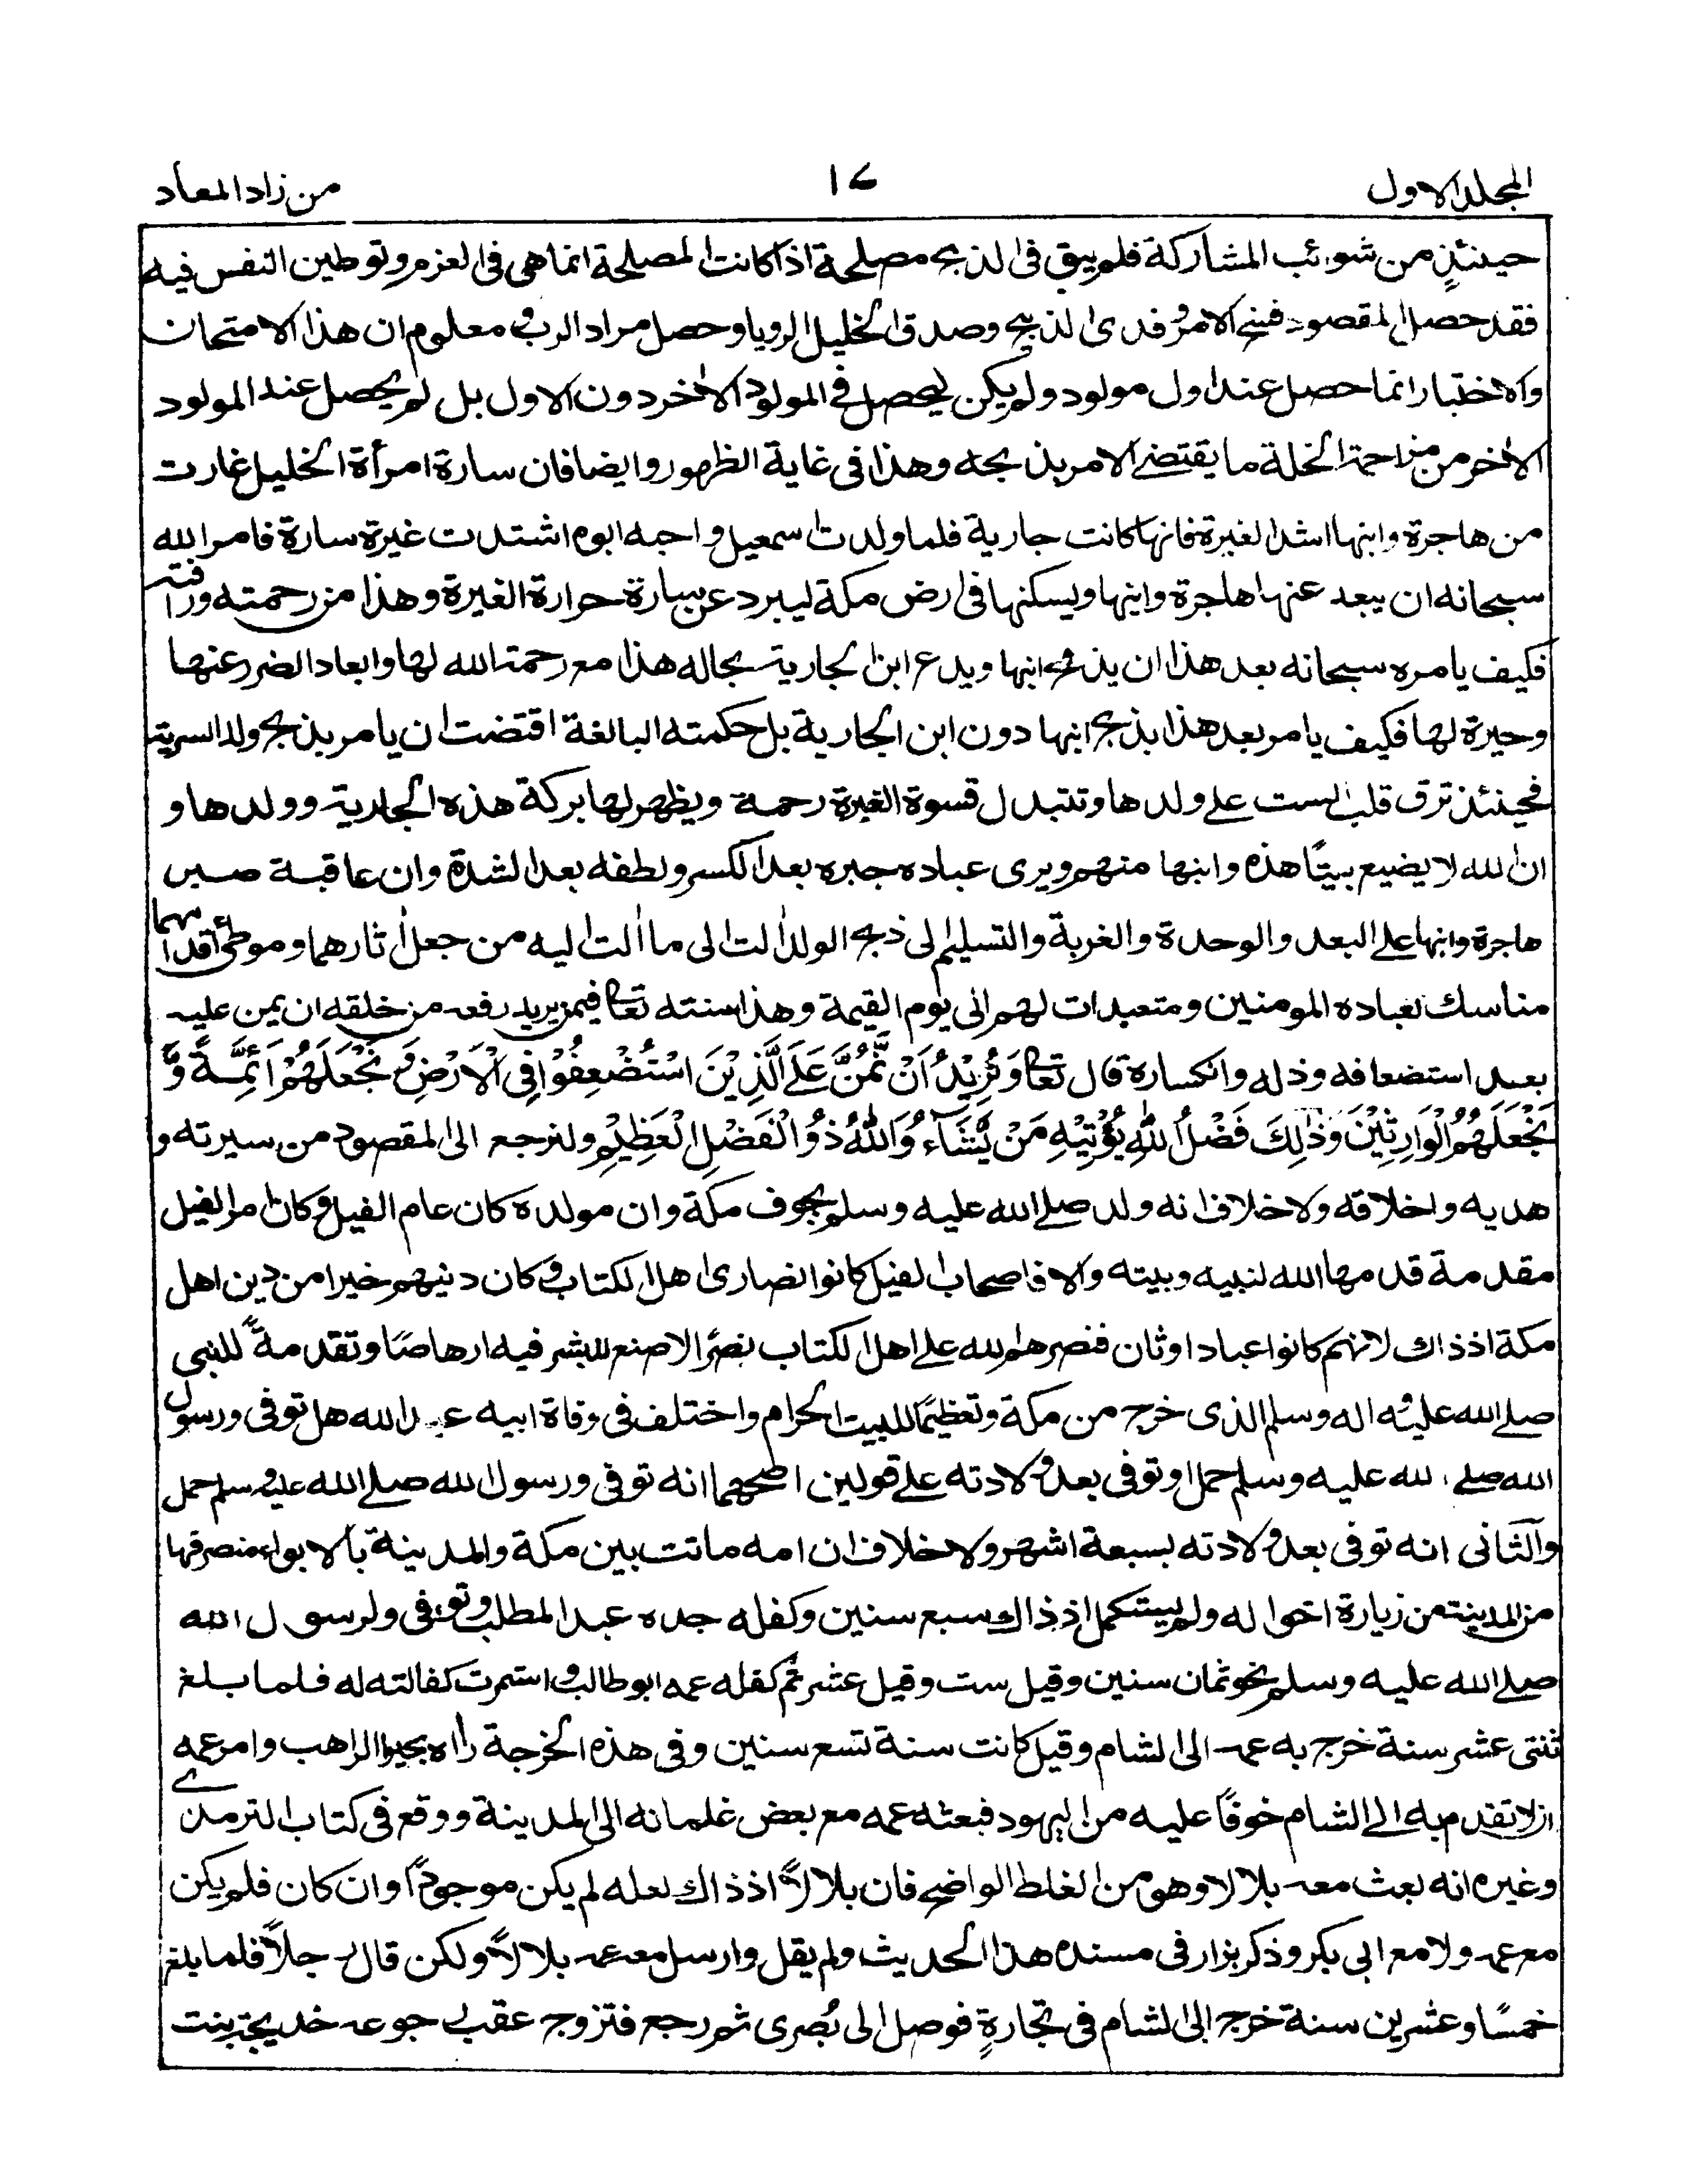 المجلد الاول
١٧
من زاد المعاد
حينئذٍ من شوائب المشاركة فلم يبق فى الذبح مصلحة اذا كانت المصلحة انما هى فى العزم وتوطين النفس فيه
فقد حصل المقصود فنسخ الامر وفدى الذبيح وصدق الخليل الرويا وحصل مراد الرب ومعلوم ان هذا الامتحان
والاختبار انما حصل عند اول مولود ولم يكن ليحصل فى المولود الاٰخر دون الاول بل لم يحصل عند المولود
الاٰخر من مزاحمة الخلة ما يقتضے الامر بذبحه وهذا فى غاية الظهور وايضا فان سارة امرأة الخليل غارت
من هاجرة وابنها اشد الغيرة فانها كانت جارية فلما ولدت اسمعيل واحبه ابوه اشتدت غيرة سارة فامر الله
سبحانه ان يبعد عنها هاجرة وابنها ويسكنها فى ارض مكة ليبرد عن سارة حرارة الغيرة وهذا من رحمته ورأفته
فكيف يامره سبحانه بعد هذا ان يذبح ابنها ويدع ابن الجارية بحاله هذا مع رحمة الله لها وابعاد الضرر عنها
وحيرة لها فكيف يامر بعد هذا بذبح ابنها دون ابن الجارية بل حكمته البالغة اقتضت ان يامر بذبح ولد السرية
فحينئذ ترق قلب الست علے ولدها وتتبدل قسوة الغيرة رحمة ويظهر لها بركة هذه الجارية وولدها و
ان الله لا يضيع بيتًا هذه وابنها منهم ويرى عباده جبره بعد الكسر ولطفه بعد الشدة وان عاقبة صبر
هاجرة وابنها علے البعد والوحدة والغربة والتسليم الى ذبح الولد اٰلت الى ما اٰلت اليه من جعل اٰثارهما وموطئ أقدامهما
مناسك لعباده المومنين ومتعبدات لهم الى يوم القيمة وهذا سنته تعالى فيمن يريد رفعه من خلقه ان يمن عليه
بعد استضعافه وذله وانكساره قال تعالى وَنُرِيْدُ اَنْ نَّمُنَّ عَلَے الَّذِيْنَ اسْتُضْعِفُوْا فِى الْاَرْضِ وَنَجْعَلَهُمْ اَئِمَّةً وَّ
نَجْعَلَهُمُ الْوَارِثِيْنَ وَذٰلِكَ فَضْلُ اللّٰهِ يُؤْتِيْهِ مَنْ يَّشَآءُ وَاللّٰهُ ذُو الْفَضْلِ الْعَظِيْمِ ولنرجع الى المقصود من سيرته و
هديه واخلاقه ولا خلاف انه ولد صلے الله عليه وسلم بجوف مكة وان مولده كان عام الفيل وكان امر الفيل
مقدمة قدمها الله لنبيه وبيته والا فاصحاب الفيل كانوا نصارى اهل الكتاب وكان دينهم خيرا من دين اهل
مكة اذ ذاك لانهم كانوا عباد اوثان فنصرهم الله علے اهل الكتاب نصرًا لا صنع للبشر فيه ارهاصًا وتقدمةً للنبى
صلے الله عليه واله وسلم الذى خرج من مكة وتعظيمًا للبيت الحرام واختلف فى وفاة ابيه عبد الله هل توفى ورسول
الله صلے الله عليه وسلم حمل او توفى بعد ولادته علے قولين اصحهما انه توفى ورسول الله صلے الله عليه وسلم حمل
والثانى انه توفى بعد ولادته بسبعة اشهر ولا خلاف ان امه ماتت بين مكة والمدينة بالابواء منصرفها
من المدينة من زيارة اخواله ولم يستكمل اذ ذاك سبع سنين وكفله جده عبد المطلب وتوفى ولرسول الله
صلے الله عليه وسلم نحو ثمان سنين وقيل ست وقيل عشر ثم كفله عمه ابو طالب واستمرت كفالته له فلما بلغ
ثنتى عشر سنة خرج به عمه الى الشام وقيل كانت سنة تسع سنين وفى هذه الخرجة راٰه بحيرا الراهب وامر عمه
ان لا تقدم به الے الشام خوفًا عليه من اليهود فبعثه عمه مع بعض غلمانه الى المدينة ووقع فى كتاب الترمذے
وغيره انه بعث معه بلالا وهو من الغلط الواضح فان بلالاً اذ ذاك لعله لم يكن موجودًا وان كان فلم يكن
مع عمه ولا مع ابى بكر وذكر بزار فى مسنده هذا الحديث ولم يقل وارسل معه عمه بلالاً ولكن قال رجلاً فلما بلغ
خمسًا وعشرين سنة خرج الى الشام فى تجارةٍ فوصل الى بُصرى ثم رجع فتزوج عقب رجوعه خديجة بنت